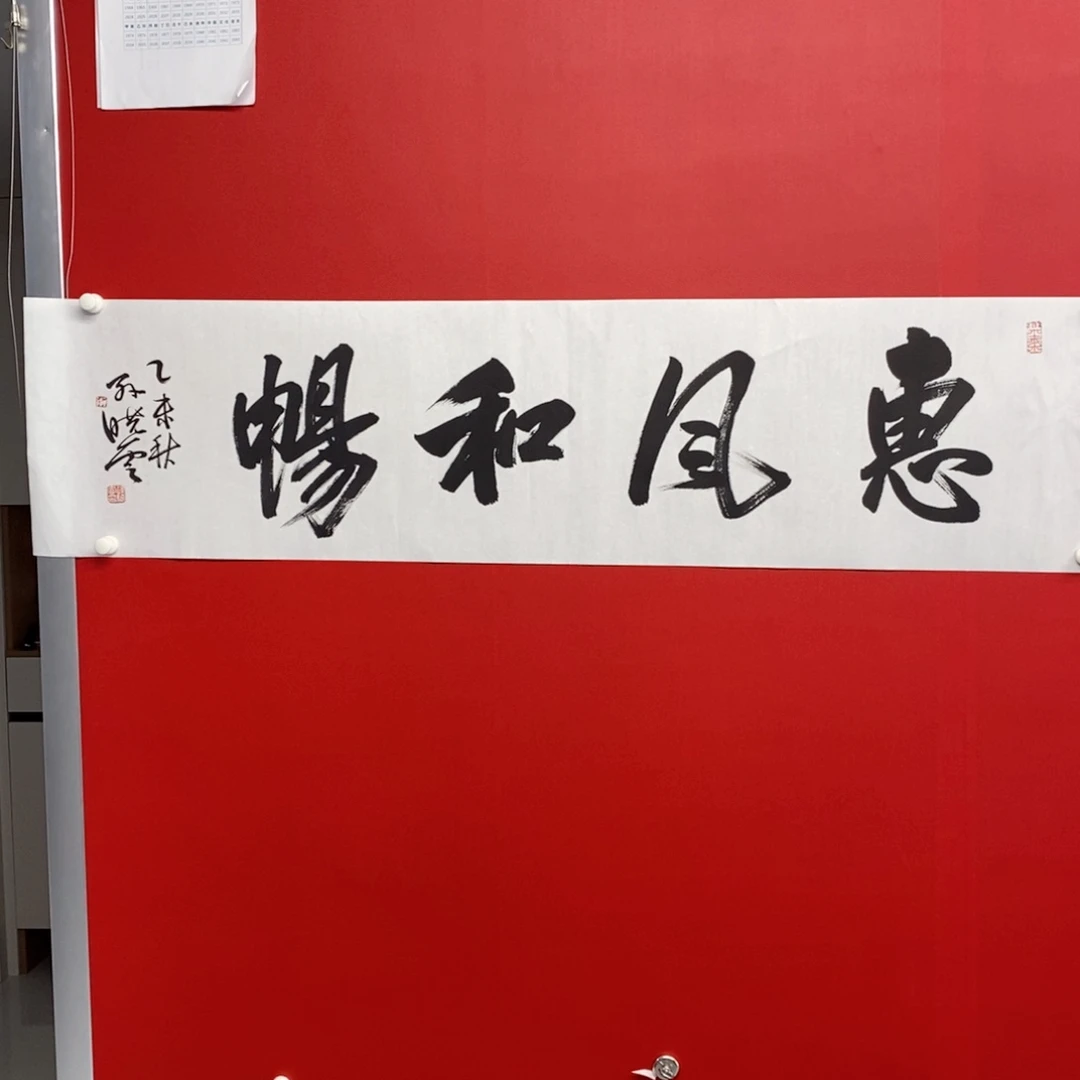 惠風和暢
乙未秋
孙晓云